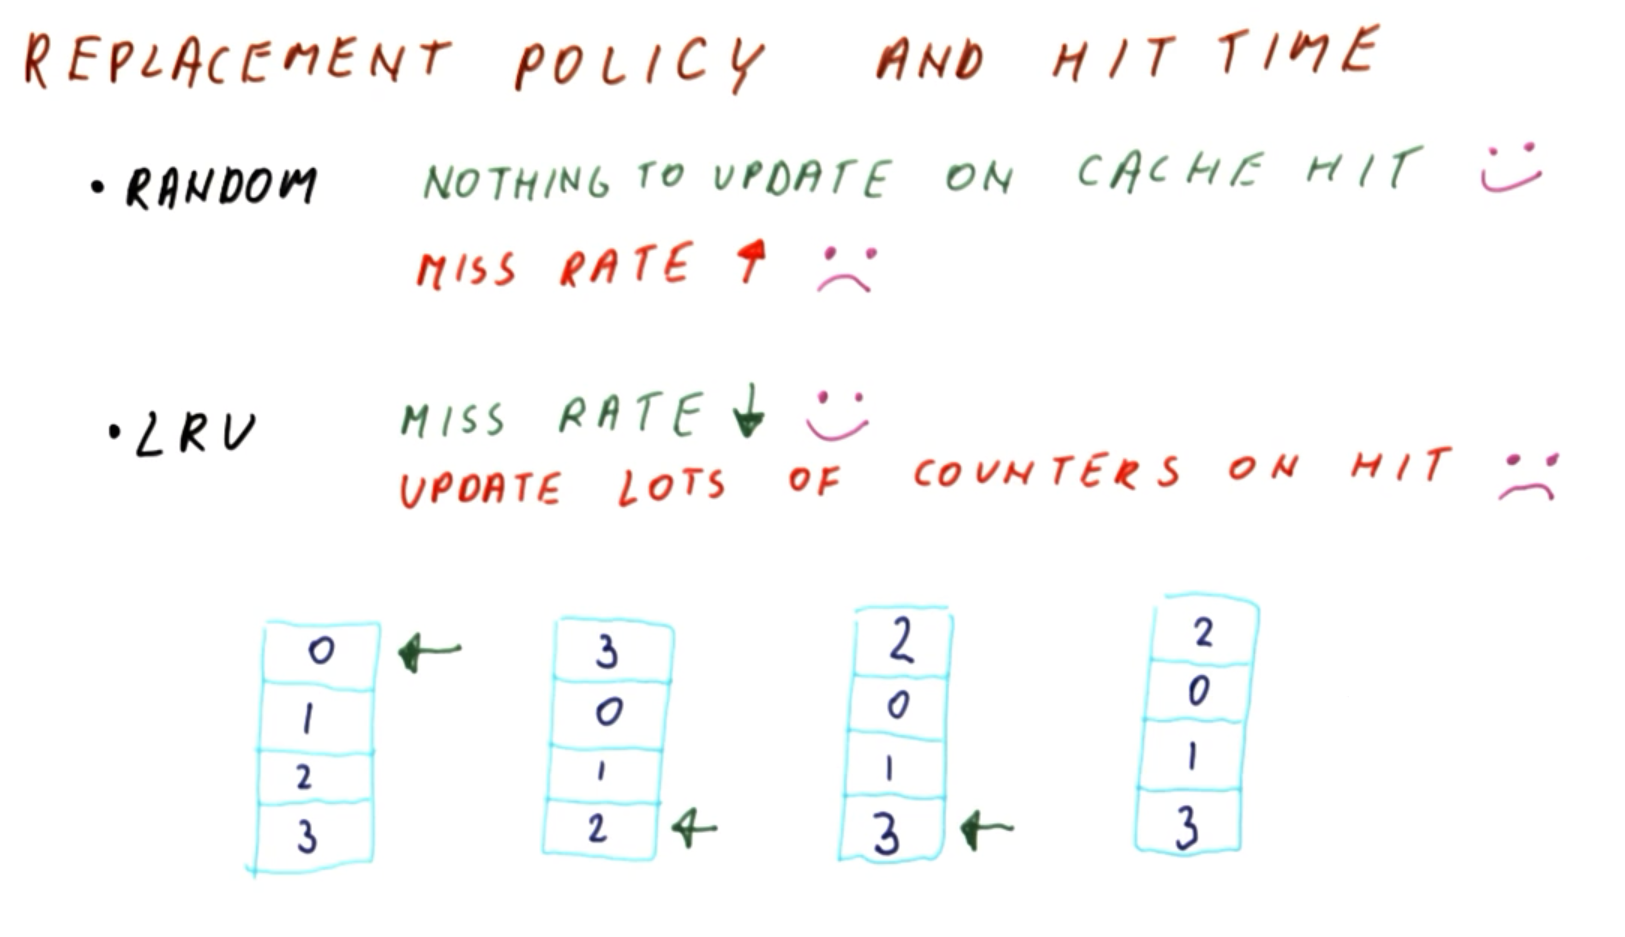 REPLACEMENT POLICY AND HIT TIME
• RANDOM NOTHING TO UPDATE ON CACHE HIT
MISS RATE ↑
• LRU MISS RATE ↓
UPDATE LOTS OF COUNTERS ON HIT
0 3 2 2
1 0 0 0
2 1 1 1
3 2 3 3